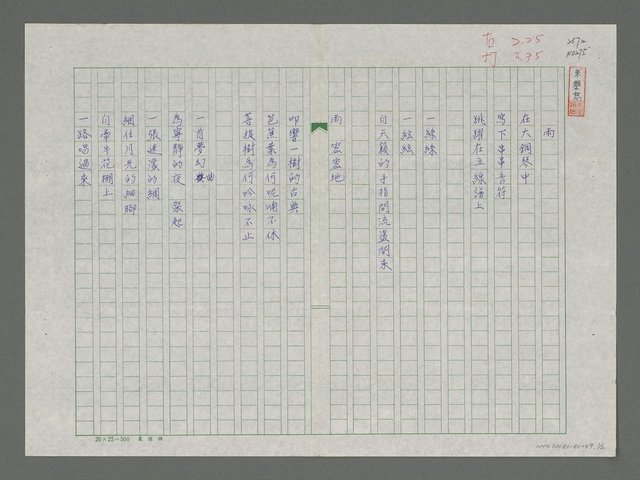 雨
在大鋼琴中
寫下串串音符
跳躍在五線譜上
一線線
一絃絃
自天籟的手指間流盪開來
雨 密密地
叩響一樹的古典
芭蕉葉為何呢喃不休
菩提樹為何吟咏不止
一首夢幻曲
為寧靜的夜 架起
一張迷濛的網
網住月光的細腳
自牽牛花棚上
一路唱過來
2.25
3.75
20×25=500